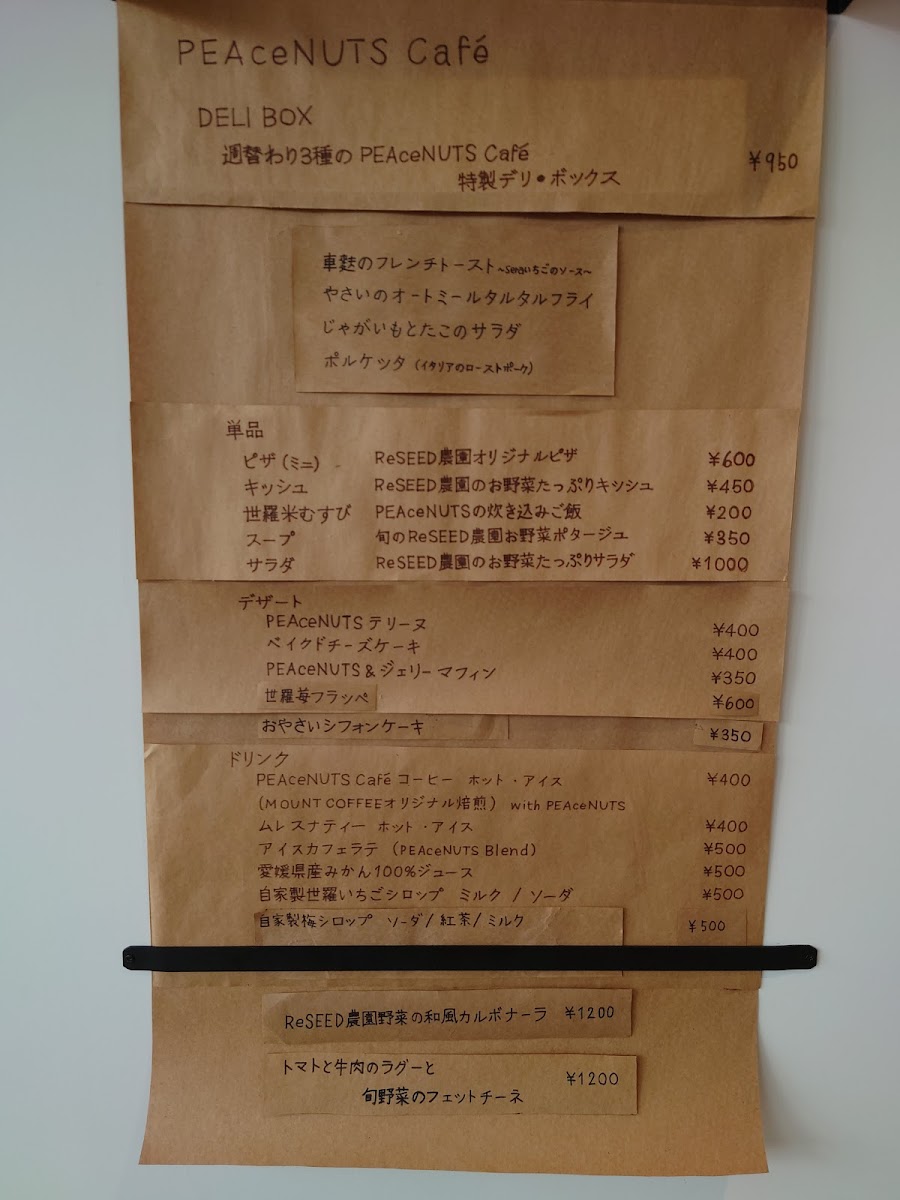 PEAceNUTS Café
DELI BOX
週替わり3種の PEAceNUTS Café
特製デリ・ボックス ¥950
車麩のフレンチトースト ~seraいちごのソース~
やさいのオートミールタルタルフライ
じゃがいもとたこのサラダ
ポルケッタ (イタリアのローストポーク)
単品
ピザ (ミニ) ReSEED農園オリジナルピザ ¥600
キッシュ ReSEED農園のお野菜たっぷりキッシュ ¥450
世羅米むすび PEAceNUTSの炊き込みご飯 ¥200
スープ 旬のReSEED農園お野菜ポタージュ ¥350
サラダ ReSEED農園のお野菜たっぷりサラダ ¥1000
デザート
PEAceNUTS テリーヌ ¥400
ベイクドチーズケーキ ¥400
PEAceNUTS & ジェリー マフィン ¥350
世羅苺フラッペ ¥600
おやさいシフォンケーキ ¥350
ドリンク
PEAceNUTS Café コーヒー ホット・アイス ¥400
(MOUNT COFFEEオリジナル焙煎) with PEAceNUTS
ムレスナティー ホット・アイス ¥400
アイスカフェラテ (PEAceNUTS Blend) ¥500
愛媛県産みかん100%ジュース ¥500
自家製世羅いちごシロップ ミルク / ソーダ ¥500
自家製梅シロップ ソーダ/ 紅茶/ ミルク ¥500
ReSEED農園野菜の和風カルボナーラ ¥1200
トマトと牛肉のラグーと
旬野菜のフェットチーネ ¥1200